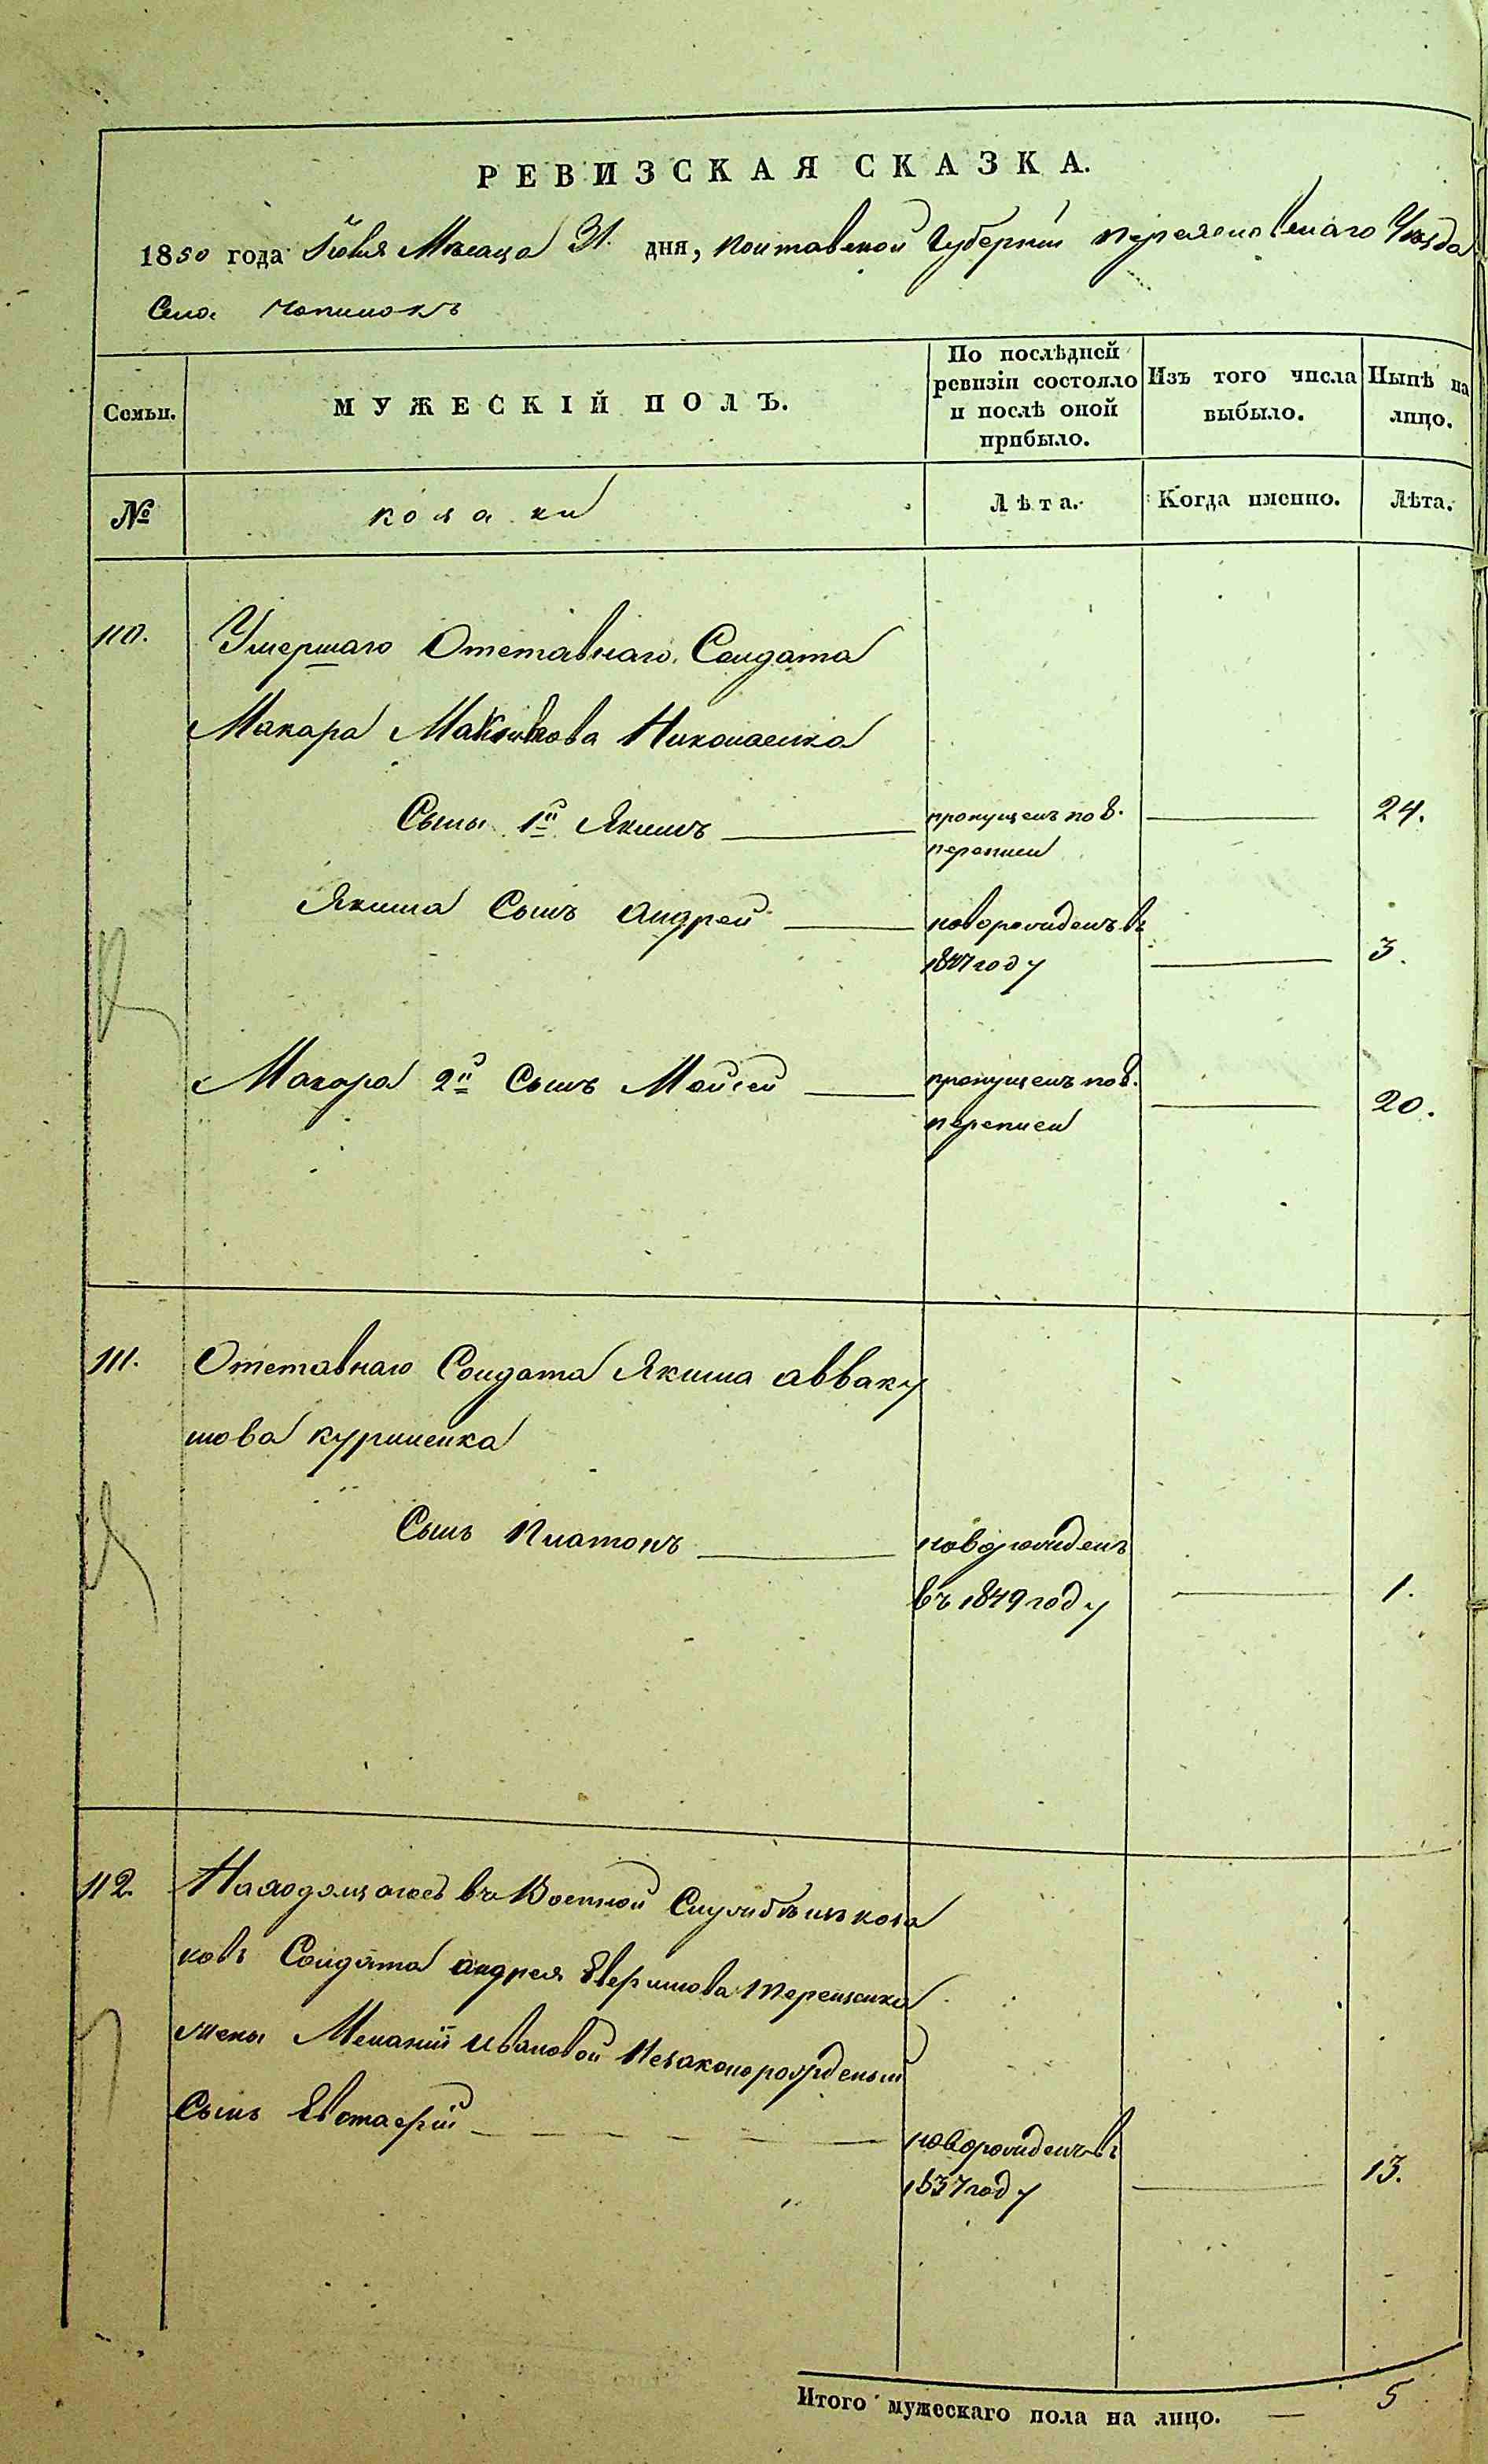 РЕВИЗСКАЯ СКАЗКА.
1850 года Месяца 31. дня, Полтавской Губернии Переяславскаго Уезда
Села Чопилокъ
Семьи. МУЖЕСКІЙ ПОЛЪ. По послѣдней ревизіи состояло и послѣ оной прибыло. Изъ того числа выбыло. Нынѣ на лицо.
№ козаки Лѣта. Когда именно. Лѣта.
110. Умершаго Отставнаго Солдата
Макара Николаенка
Сыны 1й Якимъ пропущенъ по 8. переписи 24.
Якима Сынъ Андрей новорожденъ въ 1847 году 3.
Макара 2й Сынъ Мойсей пропущенъ по 8. переписи 20.
111. Отставнаго Солдата Якима Авваку
мова Куриленка
Сынъ Платонъ новорожденъ въ 1849 году 1.
112. Находящагося въ Военной Службѣ изъ коза
ковъ Солдата Андрея Терещенка
жены Меланіи Ивановой Незаконорожденый
Сынъ Евстафій новорожденъ въ 1837 году 13.
Итого мужескаго пола на лицо. — 5